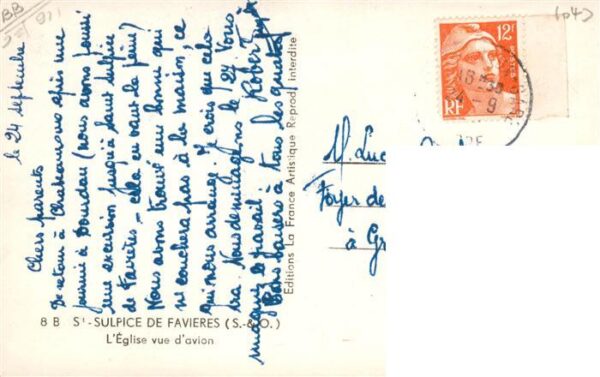 le 24 septembre
Chers parents
De retour à Chatramons après une
journée à Dourdan (nous avons fourni
une excursion jusqu'à Saint Sulpice
de Favières - cela en vaut la peine)
Nous avons trouvé une bonne qui
ne couchera pas à la maison, ce
qui nous arrange. Je crois que cela
ira. Nous déménageons le 27. Vous
imaginez le travail.
Bons baisers à tous les quatre
Robert
Editions La France Artistique Reprod. interdite
8 B St-SULPICE DE FAVIERES (S.-&O.)
L'Église vue d'avion
BB
12F
POSTES
RF
18 30
-9
M. Luc
Foyer de
à Gr